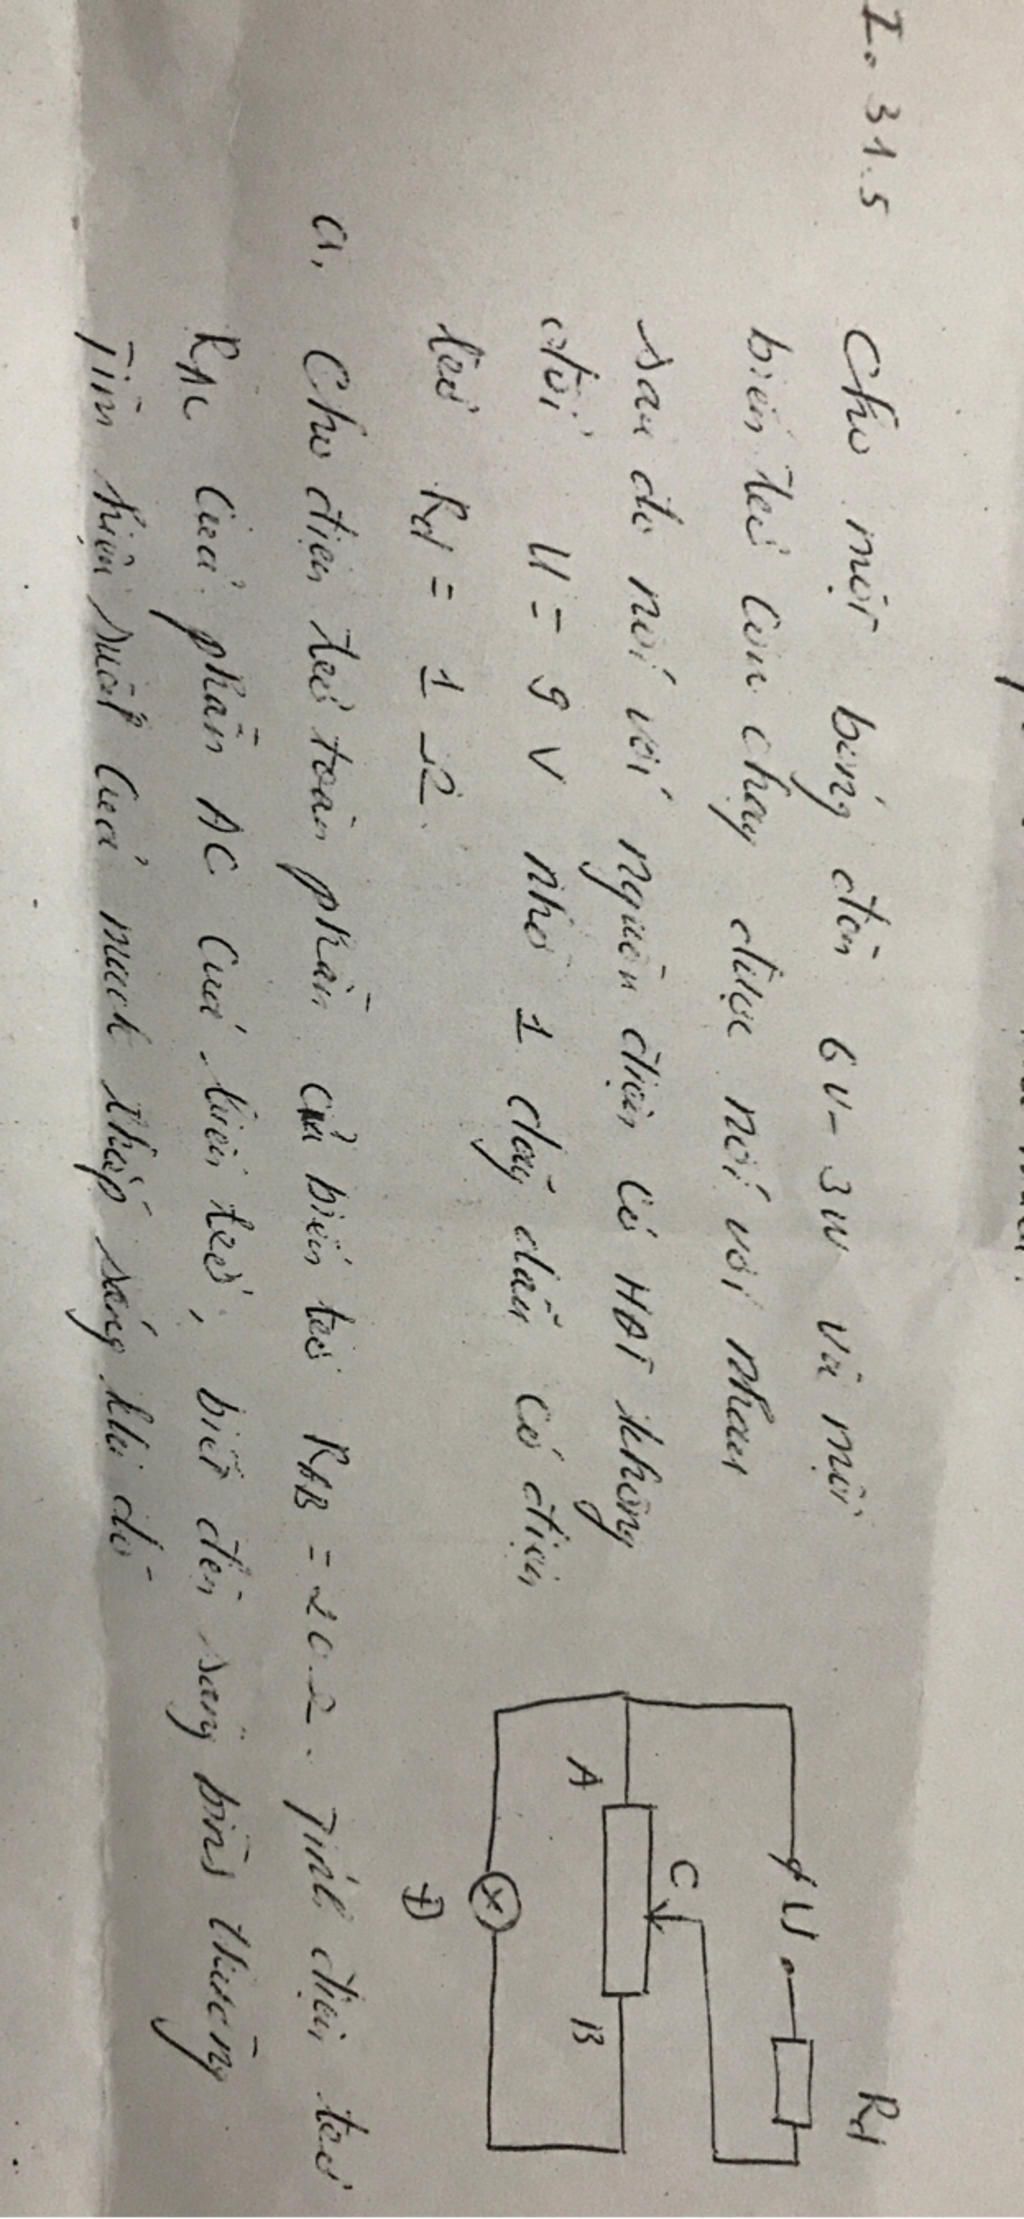 I. 31.5 Cho một bóng đèn 6V - 3W và một
biến trở con chạy được nối với nhau
sau đó nối với nguồn điện có HĐT không
đổi U = 9V nhờ 1 dây dẫn có điện
trở Rd = 1 Ω.
a, Cho điện trở toàn phần của biến trở RAB = 20 Ω. Tính điện trở
RAC của phần AC của biến trở, biết đèn sáng bình thường
Tìm hiệu suất của mạch thắp sáng khi đó
U
Rd
C
A
B
Đ